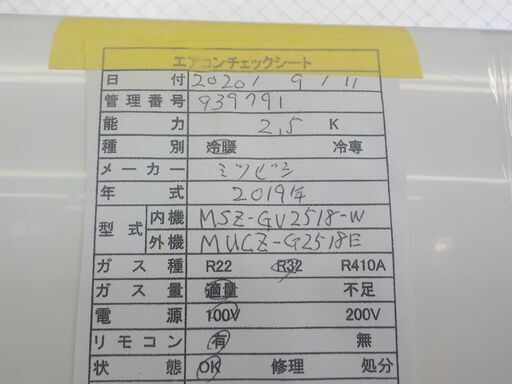 エアコンチェックシート
日 付 2020/ 9 / 11
管理番号 939791
能 力 2.5 K
種 別 冷暖 冷専
メーカー ミツビシ
年 式 2019年
型 式 内機 MSZ-GV2518-W
外機 MUCZ-G2518E
ガ ス 種 R22 R32 R410A
ガ ス 量 適量 不足
電 源 100V 200V
リモコン 有 無
状 態 OK 修理 処分